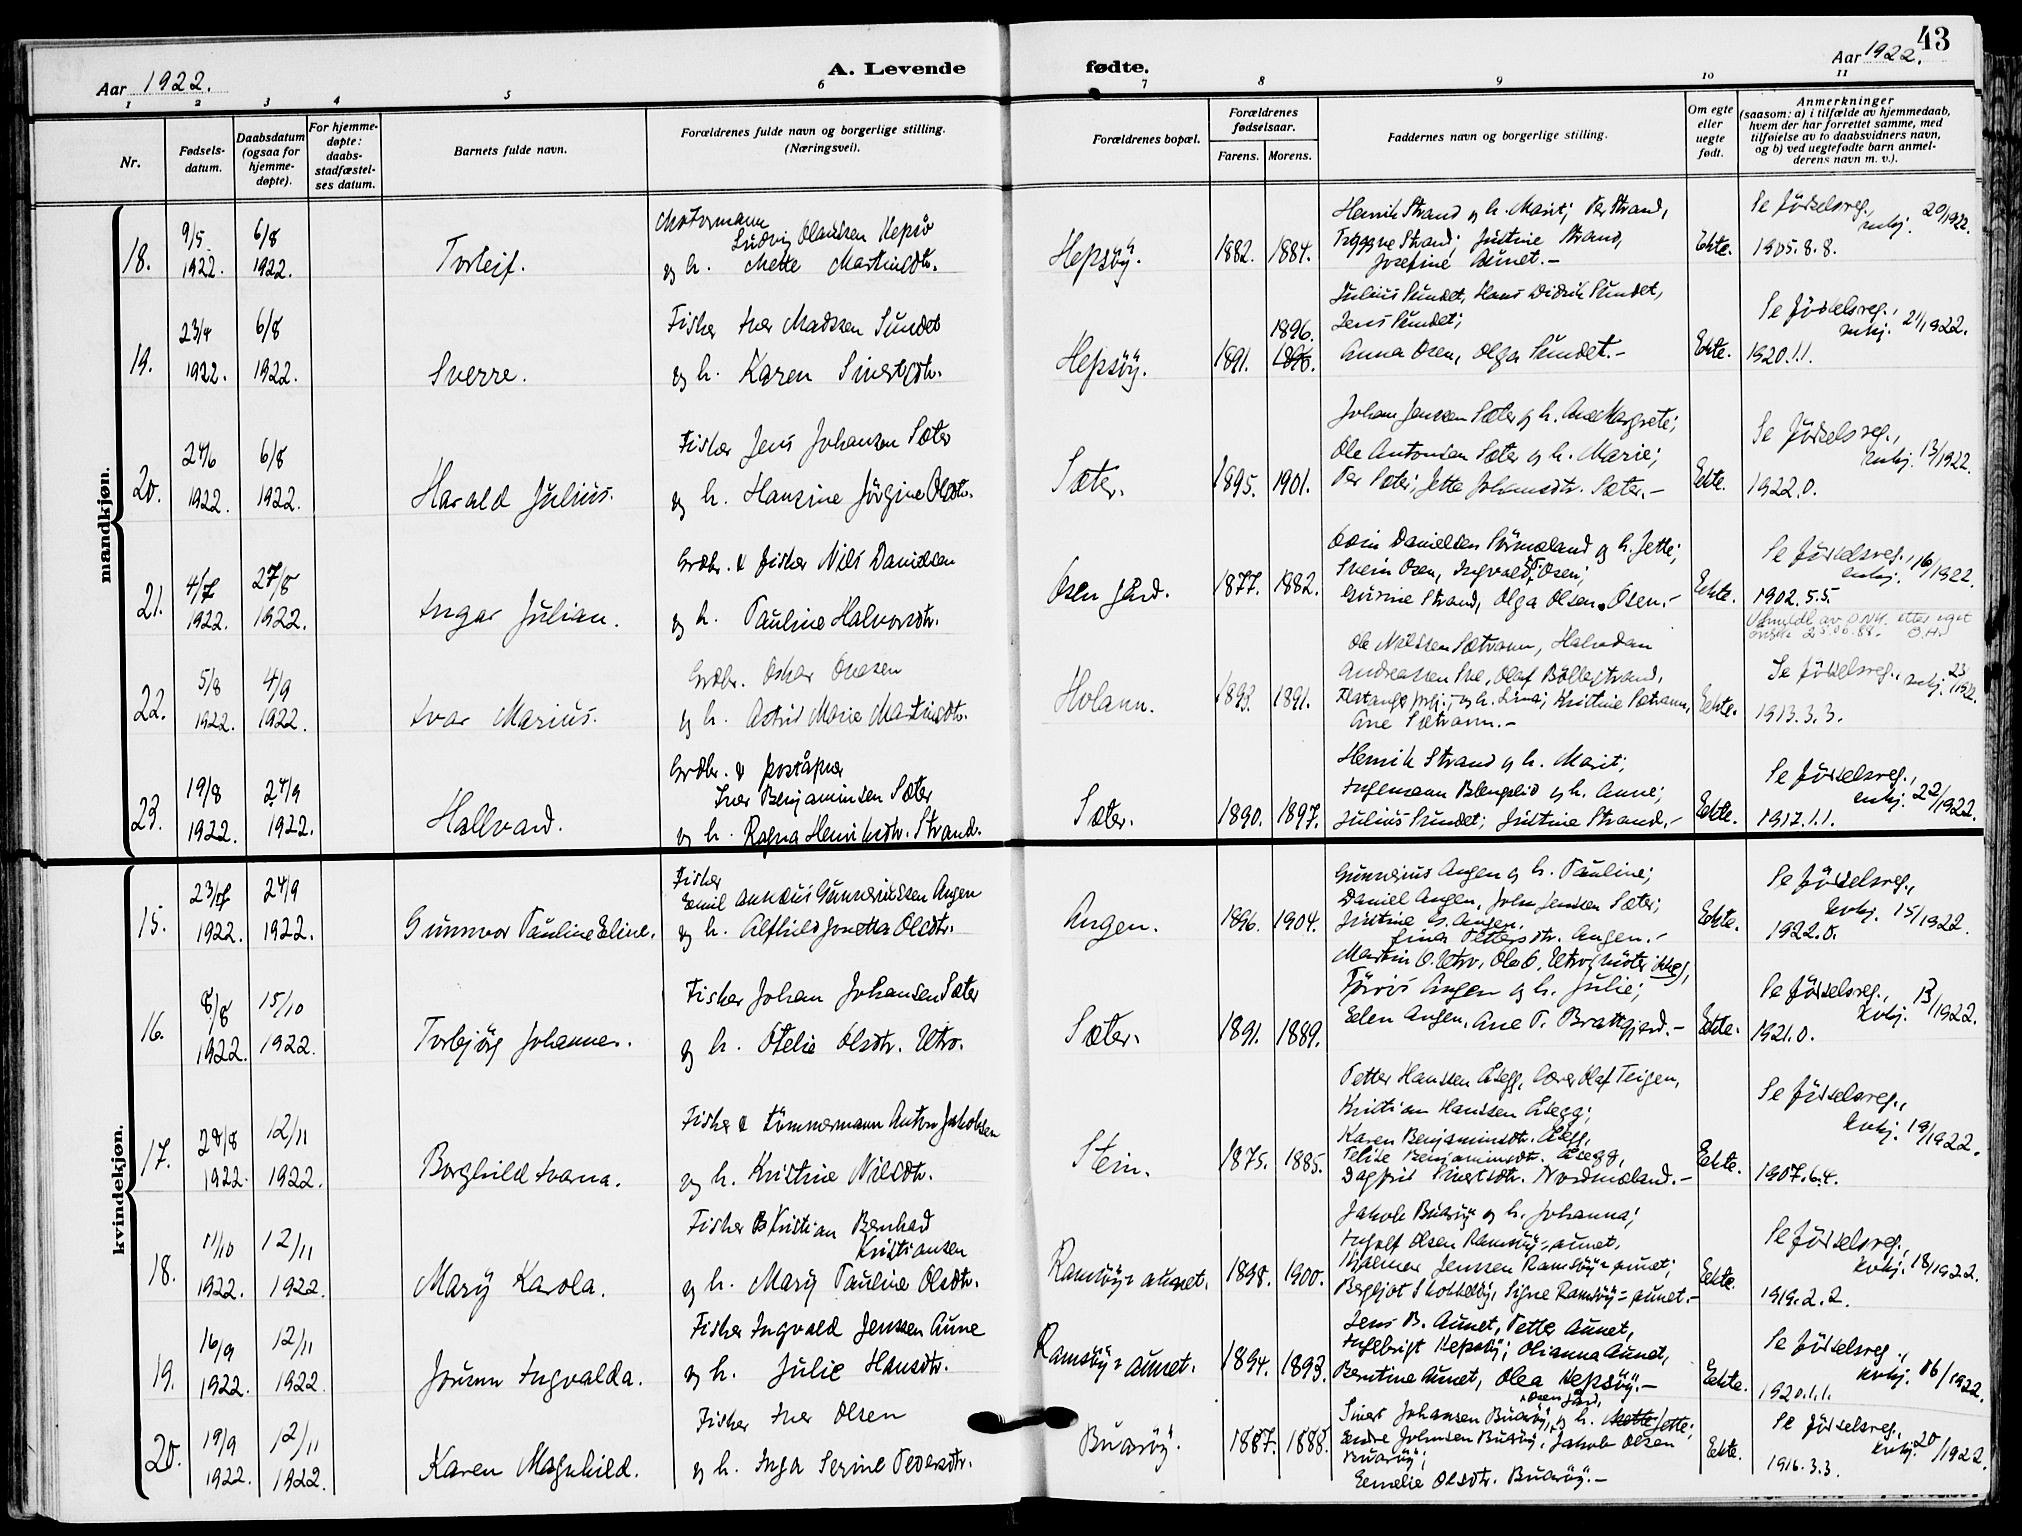 43
Aar 1922.
A. Levende fødte.
Aar 1922.
1 2 3 4 5 6 7 8 9 10 11
Nr.
Fødsels-
datum.
Daabsdatum
(ogsaa for
hjemme-
døpte).
For hjemme-
døpte:
daabs-
stadfæstel-
ses datum.
Barnets fulde navn.
Forældrenes fulde navn og borgerlige stilling.
(Næringsvei).
Forældrenes bopæl.
Forældrenes
fødselsaar.
Farens. Morens.
Faddernes navn og borgerlige stilling.
Om egte
eller
uegte
født.
Anmerkninger
(saasom: a) i tilfælde av hjemmedaab,
hvem der har forrettet samme, med
tilføielse av to daabsvidners navn,
og b) ved uegtefødte barn anmel-
derens navn m. v.).
mandkjøn.
18.
9/5 1922.
6/8 1922.
Torleif.
Motormann
Ludvig Olaussen Hepsö
og h. Mette Martinsdtr.
Hepsöy.
1882. 1884.
Henrik Strand og h. Marit; Per Strand,
Tryggve Strand; Justine Strand,
Josefine Aunet.-
Ekte.
Se födselsreg.,
mkj. 20/1922.
1905.8.8.
19.
23/4 1922.
6/8 1922.
Sverre.
Fisker Iver Madssen Sundet
og h. Karen Sivertsdtr.
Hepsöy.
1891. 1896.
Julius Sundet, Hans Didrik Sundet,
Jens Sundet;
Anna Osen, Olga Sundet.-
Ekte.
Se födselsreg.,
mkj. 21/1922.
1920.1.1.
20.
24/6 1922.
6/8 1922.
Harald Julius.
Fisker Jens Johansen Sæter
og h. Hansine Jörgine Olsdtr.
Sæter.
1895. 1901.
Johan Jenssen Sæter og h. Ane Margrete;
Ole Antonsen Sæter og h. Marie;
Per Sæter; Jette Johansdtr. Sæter.-
Ekte.
Se födselsreg.,
mkj. 13/1922.
1922.0.
21.
4/7 1922.
27/8 1922.
Ingar Julian.
Grdbr. & fisker Nils Danielsen
og h. Pauline Halvorsdtr.
Osen gård.
1877. 1882.
Odin Danielsen Sörmeland og h. Jette;
Svein Osen, Ingvald Osen;
Gurine Strand, Olga Olsen Osen.-
Ekte.
Se födselsreg.,
mkj. 16/1922.
1902.5.5.
Utmeldt av D.N.K. etter eget
ønske 25.06.88. O.H.
22.
5/8 1922.
4/9 1922.
Ivar Marius.
Grdbr. Oskar Onesen
og h. Astrid Marie Martinsdtr.
Holann.
1893. 1891.
Ole Nilssen Sætvann, Halvdan
Andreassen Sve, Olaf Böllestrand,
og h. Lina; Kristine Sætvann,
Ane Sætvann.-
Ekte.
Se födselsreg., mkj. 23/1922.
1913.3.3.
23.
19/8 1922.
24/9 1922.
Hallvard.
Grdbr. & poståpner
Iver Benjaminsen Sæter
og h. Ragna Henriksdtr. Strand.
Sæter.
1890. 1897.
Henrik Strand og h. Marit;
Ingemann Blengslid og h. Anne;
Julius Sundet; Justine Strand.-
Ekte.
Se födselsreg.,
mkj. 22/1922.
1917.1.1.
kvindekjøn.
15.
23/7 1922.
24/9 1922.
Gunnvor Pauline Eline.
Fisker
Emil Annæus Gunneriussen Angen
og h. Alfhild Jonetta Olsdtr.
Angen.
1896. 1904.
Gunnerius Angen og h. Pauline;
Daniel Angen, John Jenssen Sæter;
Justine G. Angen,
Lina Pettersdtr. Angen.-
Ekte.
Se födselsreg.,
kvkj. 15/1922.
1922.0.
16.
8/8 1922.
15/10 1922.
Torbjörg Johanne.
Fisker Johan Johansen Sæter
og h. Otelie Olsdtr. Utro.
Sæter.
1891. 1889.
Martin O. Utro, Ole O. Utro
Törris Angen og h. Julie;
Elen Angen, Ane P. Brattgjerd.-
Ekte.
Se födselsreg.,
kvkj. 13/1922.
1921.0.
17.
28/8 1922.
12/11 1922.
Borghild Ivarna.
Fisker & tömmermann Anton Jakobsen
og h. Kristine Nilsdtr.
Stein.
1875. 1885.
Petter Hanssen Åsegg, lærer Olaf Teigen,
Kristian Hanssen Åsegg;
Karen Benjaminsdtr. Åsegg,
Felise Benjaminsdtr. Åsegg,
Dagfrid Sivertsdtr. Nordmeland.-
Ekte.
Se födselsreg.,
kvkj. 19/1922.
1907.6.4.
18.
11/10 1922.
12/11 1922.
Mary Karola.
Fisker Kristian Bernhard
Kristiansen
og h. Mary Pauline Olsdtr.
Ramsöy=aunet.
1898. 1900.
Jakob Buaröy og h. Johanna;
Ingolf Olsen Ramsöy=aunet,
Hjalmar Jenssen Ramsöy=aunet;
Bergljot Skotteböy, Signe Ramsöy=aunet.-
Ekte.
Se födselsreg.,
kvkj. 18/1922.
1919.2.2.
19.
16/9 1922.
12/11 1922.
Jorunn Ingvalda.
Fisker Ingvald Jenssen Aune
og h. Julie Hansdtr.
Ramsöy=aunet.
1894. 1893.
Jens B. Aunet, Petter Aunet,
Ingebrigt Hepsöy; Olianna Aunet,
Berntine Aunet, Olea Hepsöy.-
Ekte.
Se födselsreg.,
kvkj. 16/1922.
1920.1.1.
20.
19/9 1922.
12/11 1922.
Karen Magnhild.
Fisker Iver Olsen
og h. Inga Serine Pedersdtr.
Buaröy.
1887. 1888.
Osen gård,
Sivert Johansen Buaröy, og h. Mette Jette;
Endre Johnsen Buaröy, Jakob Olsen
Buaröy;
Emelie Olsdtr. Buaröy.-
Ekte.
Se födselsreg.,
kvkj. 20/1922.
1916.3.3.